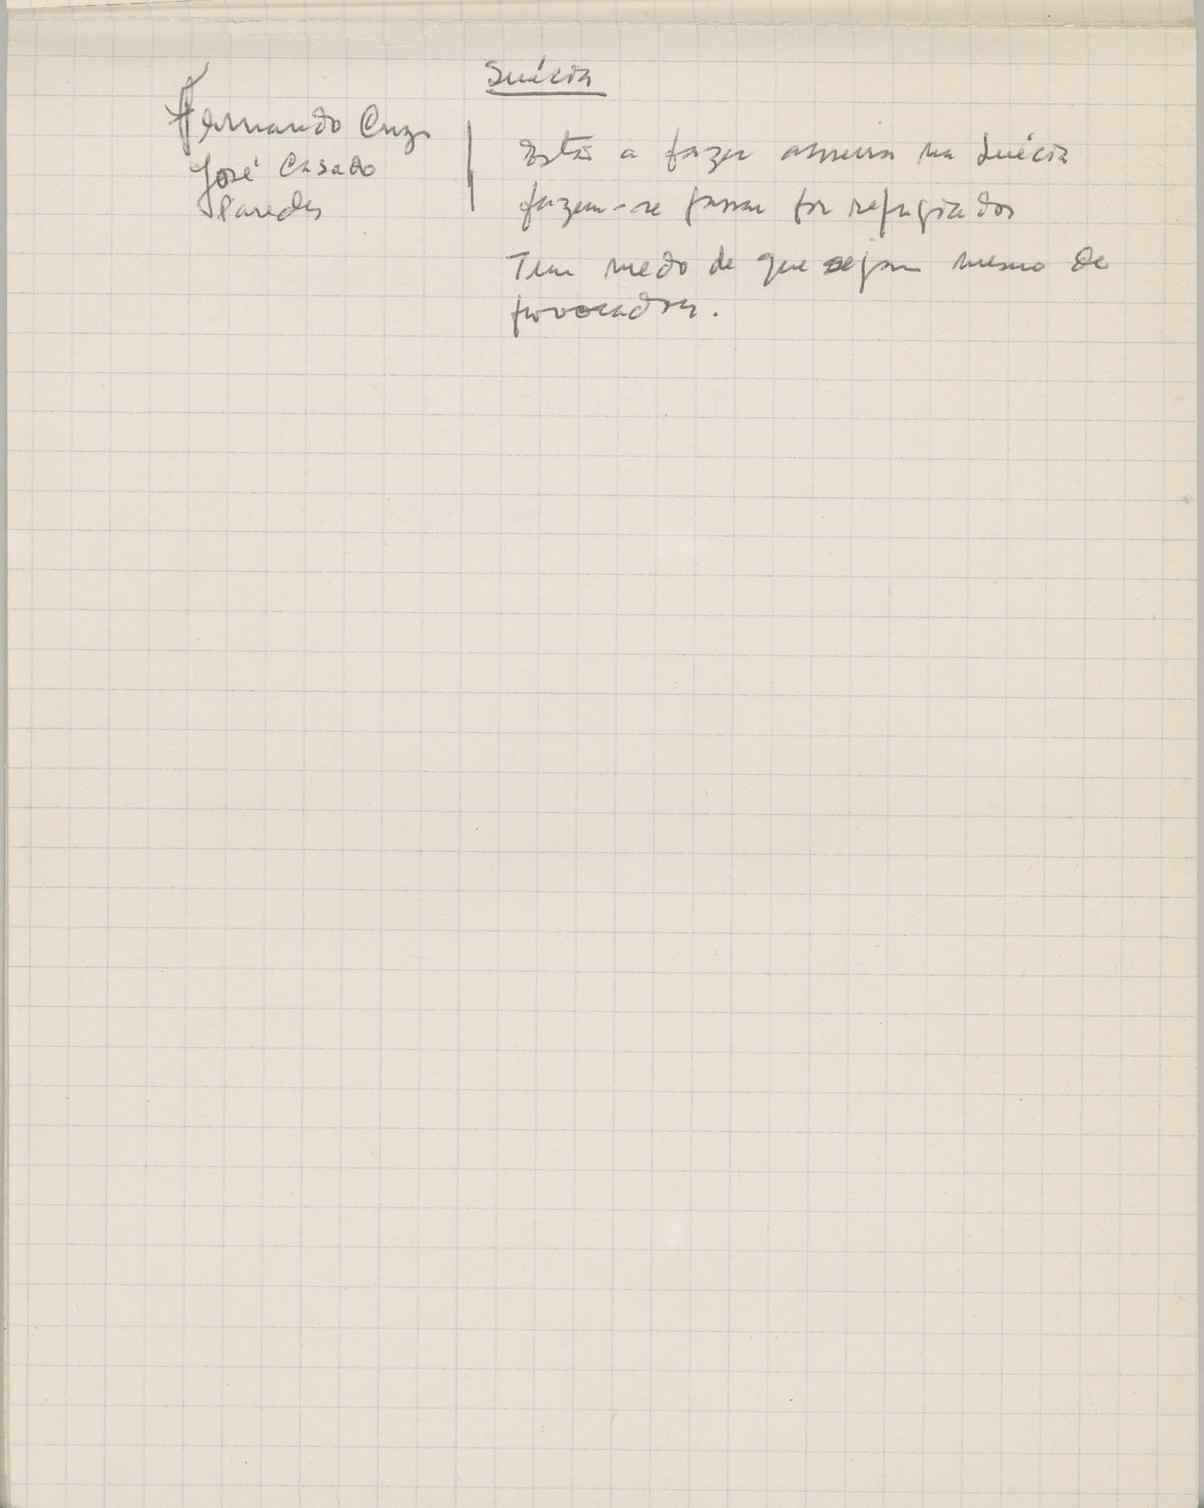 Suécia
Fernando Cruz
José Casado
Paredes
Estão a fazer asneiras na Suécia
fazem-se passar por refugiados
Tem medo de que sejam mesmo de
provocadores.